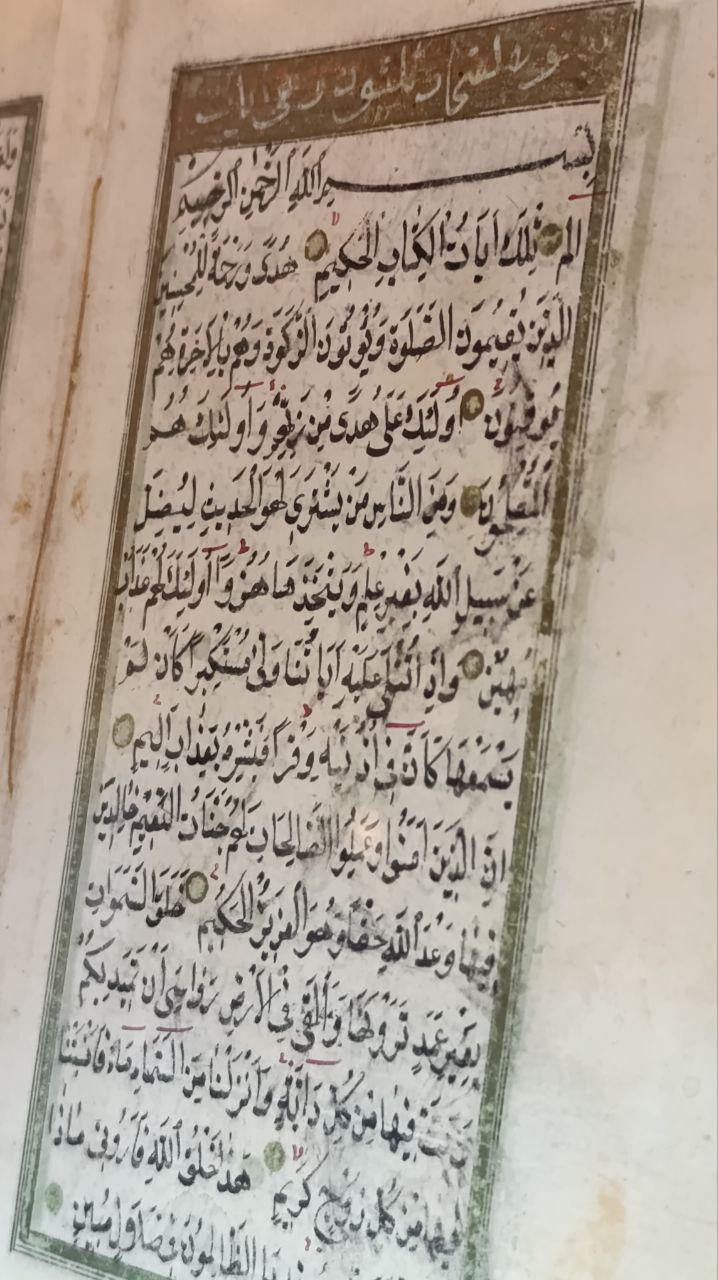 سورة لقمان ثلثون و آيات
بسم الله الرحمن الرحيم
الم تِلْكَ اٰيَاتُ الْكِتَابِ الْحَكِيمِ هُدًى وَرَحْمَةً لِلْمُحْسِنِينَ
الَّذِينَ يُقِيمُونَ الصَّلٰوةَ وَيُؤْتُونَ الزَّكٰوةَ وَهُمْ بِالْاٰخِرَةِ هُمْ
يُوقِنُونَ اُولٰئِكَ عَلٰى هُدًى مِنْ رَبِّهِمْ وَاُولٰئِكَ هُمُ
الْمُفْلِحُونَ وَمِنَ النَّاسِ مَنْ يَشْتَرِى لَهْوَ الْحَدِيثِ لِيُضِلَّ
عَنْ سَبِيلِ اللّٰهِ بِغَيْرِ عِلْمٍ وَيَتَّخِذَهَا هُزُوًا اُولٰئِكَ لَهُمْ عَذَابٌ
مُهِينٌ وَاِذَا تُتْلٰى عَلَيْهِ اٰيَاتُنَا وَلّٰى مُسْتَكْبِرًا كَاَنْ لَمْ
يَسْمَعْهَا كَاَنَّ فِى اُذُنَيْهِ وَقْرًا فَبَشِّرْهُ بِعَذَابٍ اَلِيمٍ
اِنَّ الَّذِينَ اٰمَنُوا وَعَمِلُوا الصَّالِحَاتِ لَهُمْ جَنَّاتُ النَّعِيمِ خَالِدِينَ
فِيهَا وَعْدَ اللّٰهِ حَقًّا وَهُوَ الْعَزِيزُ الْحَكِيمُ خَلَقَ السَّمٰوَاتِ
بِغَيْرِ عَمَدٍ تَرَوْنَهَا وَاَلْقٰى فِى الْاَرْضِ رَوَاسِىَ اَنْ تَمِيدَ بِكُمْ
وَبَثَّ فِيهَا مِنْ كُلِّ دَابَّةٍ وَاَنْزَلْنَا مِنَ السَّمَاءِ مَاءً فَاَنْبَتْنَا
فِيهَا مِنْ كُلِّ زَوْجٍ كَرِيمٍ هٰذَا خَلْقُ اللّٰهِ فَاَرُونِى مَاذَا
الظَّالِمُونَ فِى ضَلَالٍ مُبِينٍ